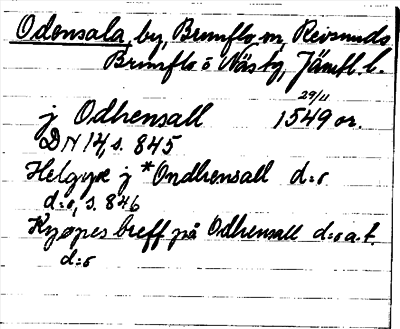 Odensala, by, Brunflo sn, Revsunds
Brunflo o Näs tg, Jämtl. l.
29/11
j Odhensall 1549 or.
DN 14, s. 845
Helgyx j *Ondhensall d:o
d:o, s. 846
Kyøpes breff på Odhensall d:o a.t.
d:o